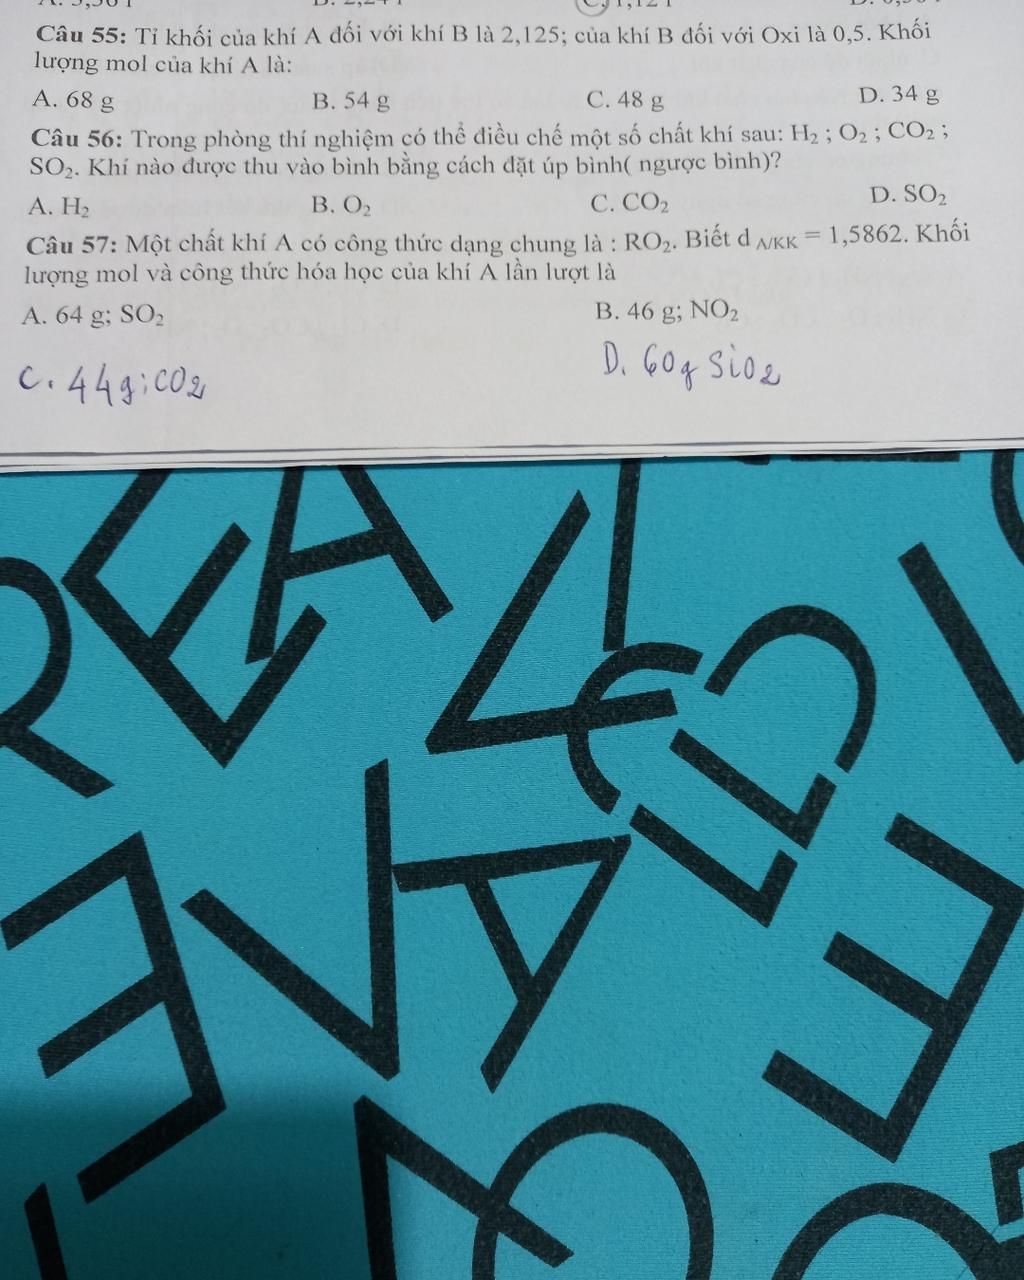 Câu 55: Tỉ khối của khí A đối với khí B là 2,125; của khí B đối với Oxi là 0,5. Khối
lượng mol của khí A là:
A. 68 g B. 54 g C. 48 g D. 34 g
Câu 56: Trong phòng thí nghiệm có thể điều chế một số chất khí sau: H₂ ; O₂ ; CO₂ ;
SO₂. Khí nào được thu vào bình bằng cách đặt úp bình( ngược bình)?
A. H₂ B. O₂ C. CO₂ D. SO₂
Câu 57: Một chất khí A có công thức dạng chung là : RO₂. Biết d A/KK = 1,5862. Khối
lượng mol và công thức hóa học của khí A lần lượt là
A. 64 g; SO₂ B. 46 g; NO₂
C. 44g; CO₂ D. 60g SiO₂